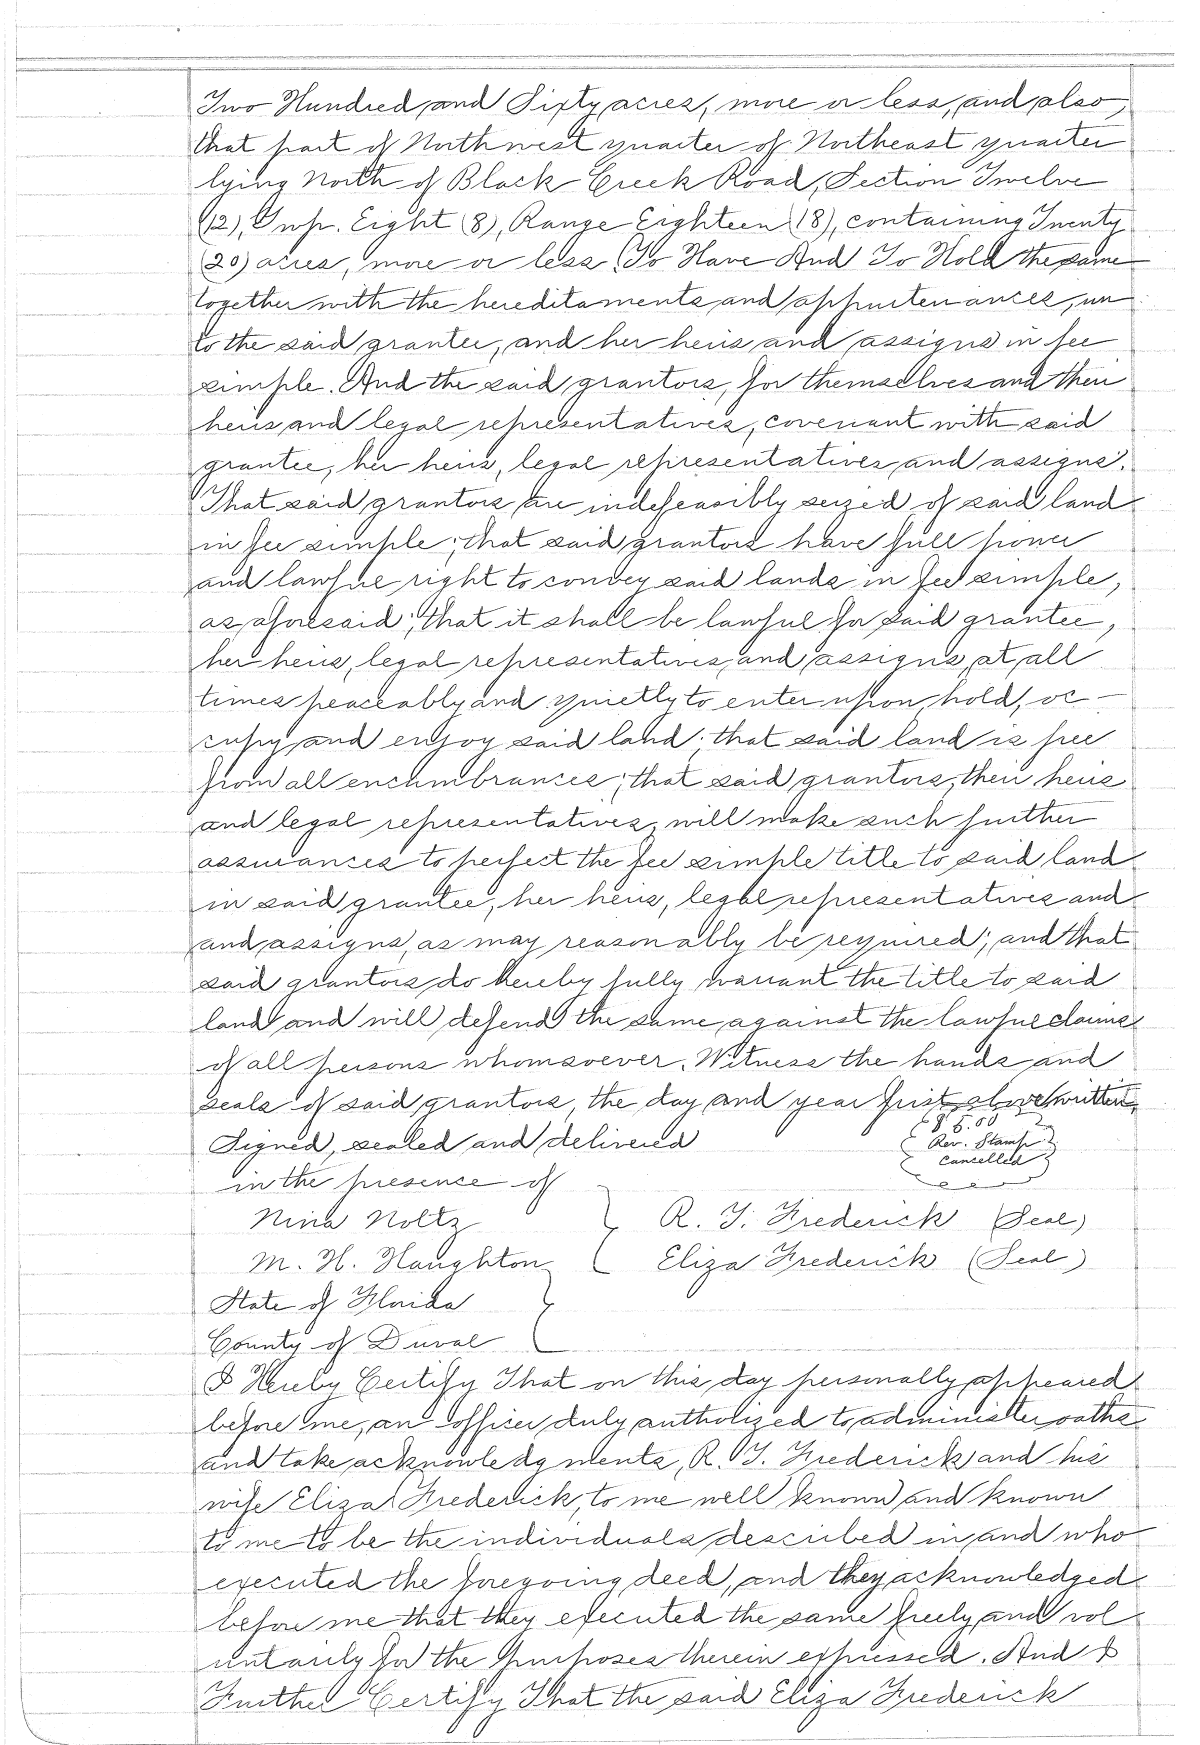 Two Hundred and Sixty acres, more or less, and also,
that part of Northwest quarter of Northeast quarter
lying North of Black Creek Road, Section Twelve
(12), Twp. Eight (8), Range Eighteen (18), containing Twenty
(20) acres, more or less. To Have And To Hold the same
together with the hereditaments and appurtenances, un
to the said grantee, and her heirs and assigns in fee
simple. And the said grantors, for themselves and their
heirs and legal representatives, covenant with said
grantee, her heirs, legal representatives and assigns:
That said grantors are indefeasibly seized of said land
in fee simple; that said grantors have full power
and lawful right to convey said lands in fee simple,
as aforesaid; that it shall be lawful for said grantee,
her heirs, legal representatives and assigns, at all
times peaceably and quietly to enter upon, hold, oc-
cupy and enjoy said land; that said land is free
from all encumbrances; that said grantors, their heirs
and legal representatives, will make such further
assurances to perfect the fee simple title to said land
in said grantee, her heirs, legal representatives and
and assigns, as may reasonably be required; and that
said grantors do hereby fully warrant the title to said
land and will defend the same against the lawful claims
of all persons whomsoever. Witness the hands and
seals of said grantors, the day and year first above written.
Signed, sealed and delivered
$5.00
Rev. Stamp
Cancelled
in the presence of
Nina Noltz
R. T. Frederick (Seal)
M. H. Haughton
Eliza Frederick (Seal)
State of Florida
County of Duval
I Hereby Certify That on this day personally appeared
before me, an officer duly authorized to administer oaths
and take acknowledgments, R. T. Frederick and his
wife Eliza Frederick, to me well known and known
to me to be the individuals described in and who
executed the foregoing deed, and they acknowledged
before me that they executed the same freely and vol
untarily for the purposes therein expressed. And I
Further Certify That the said Eliza Frederick